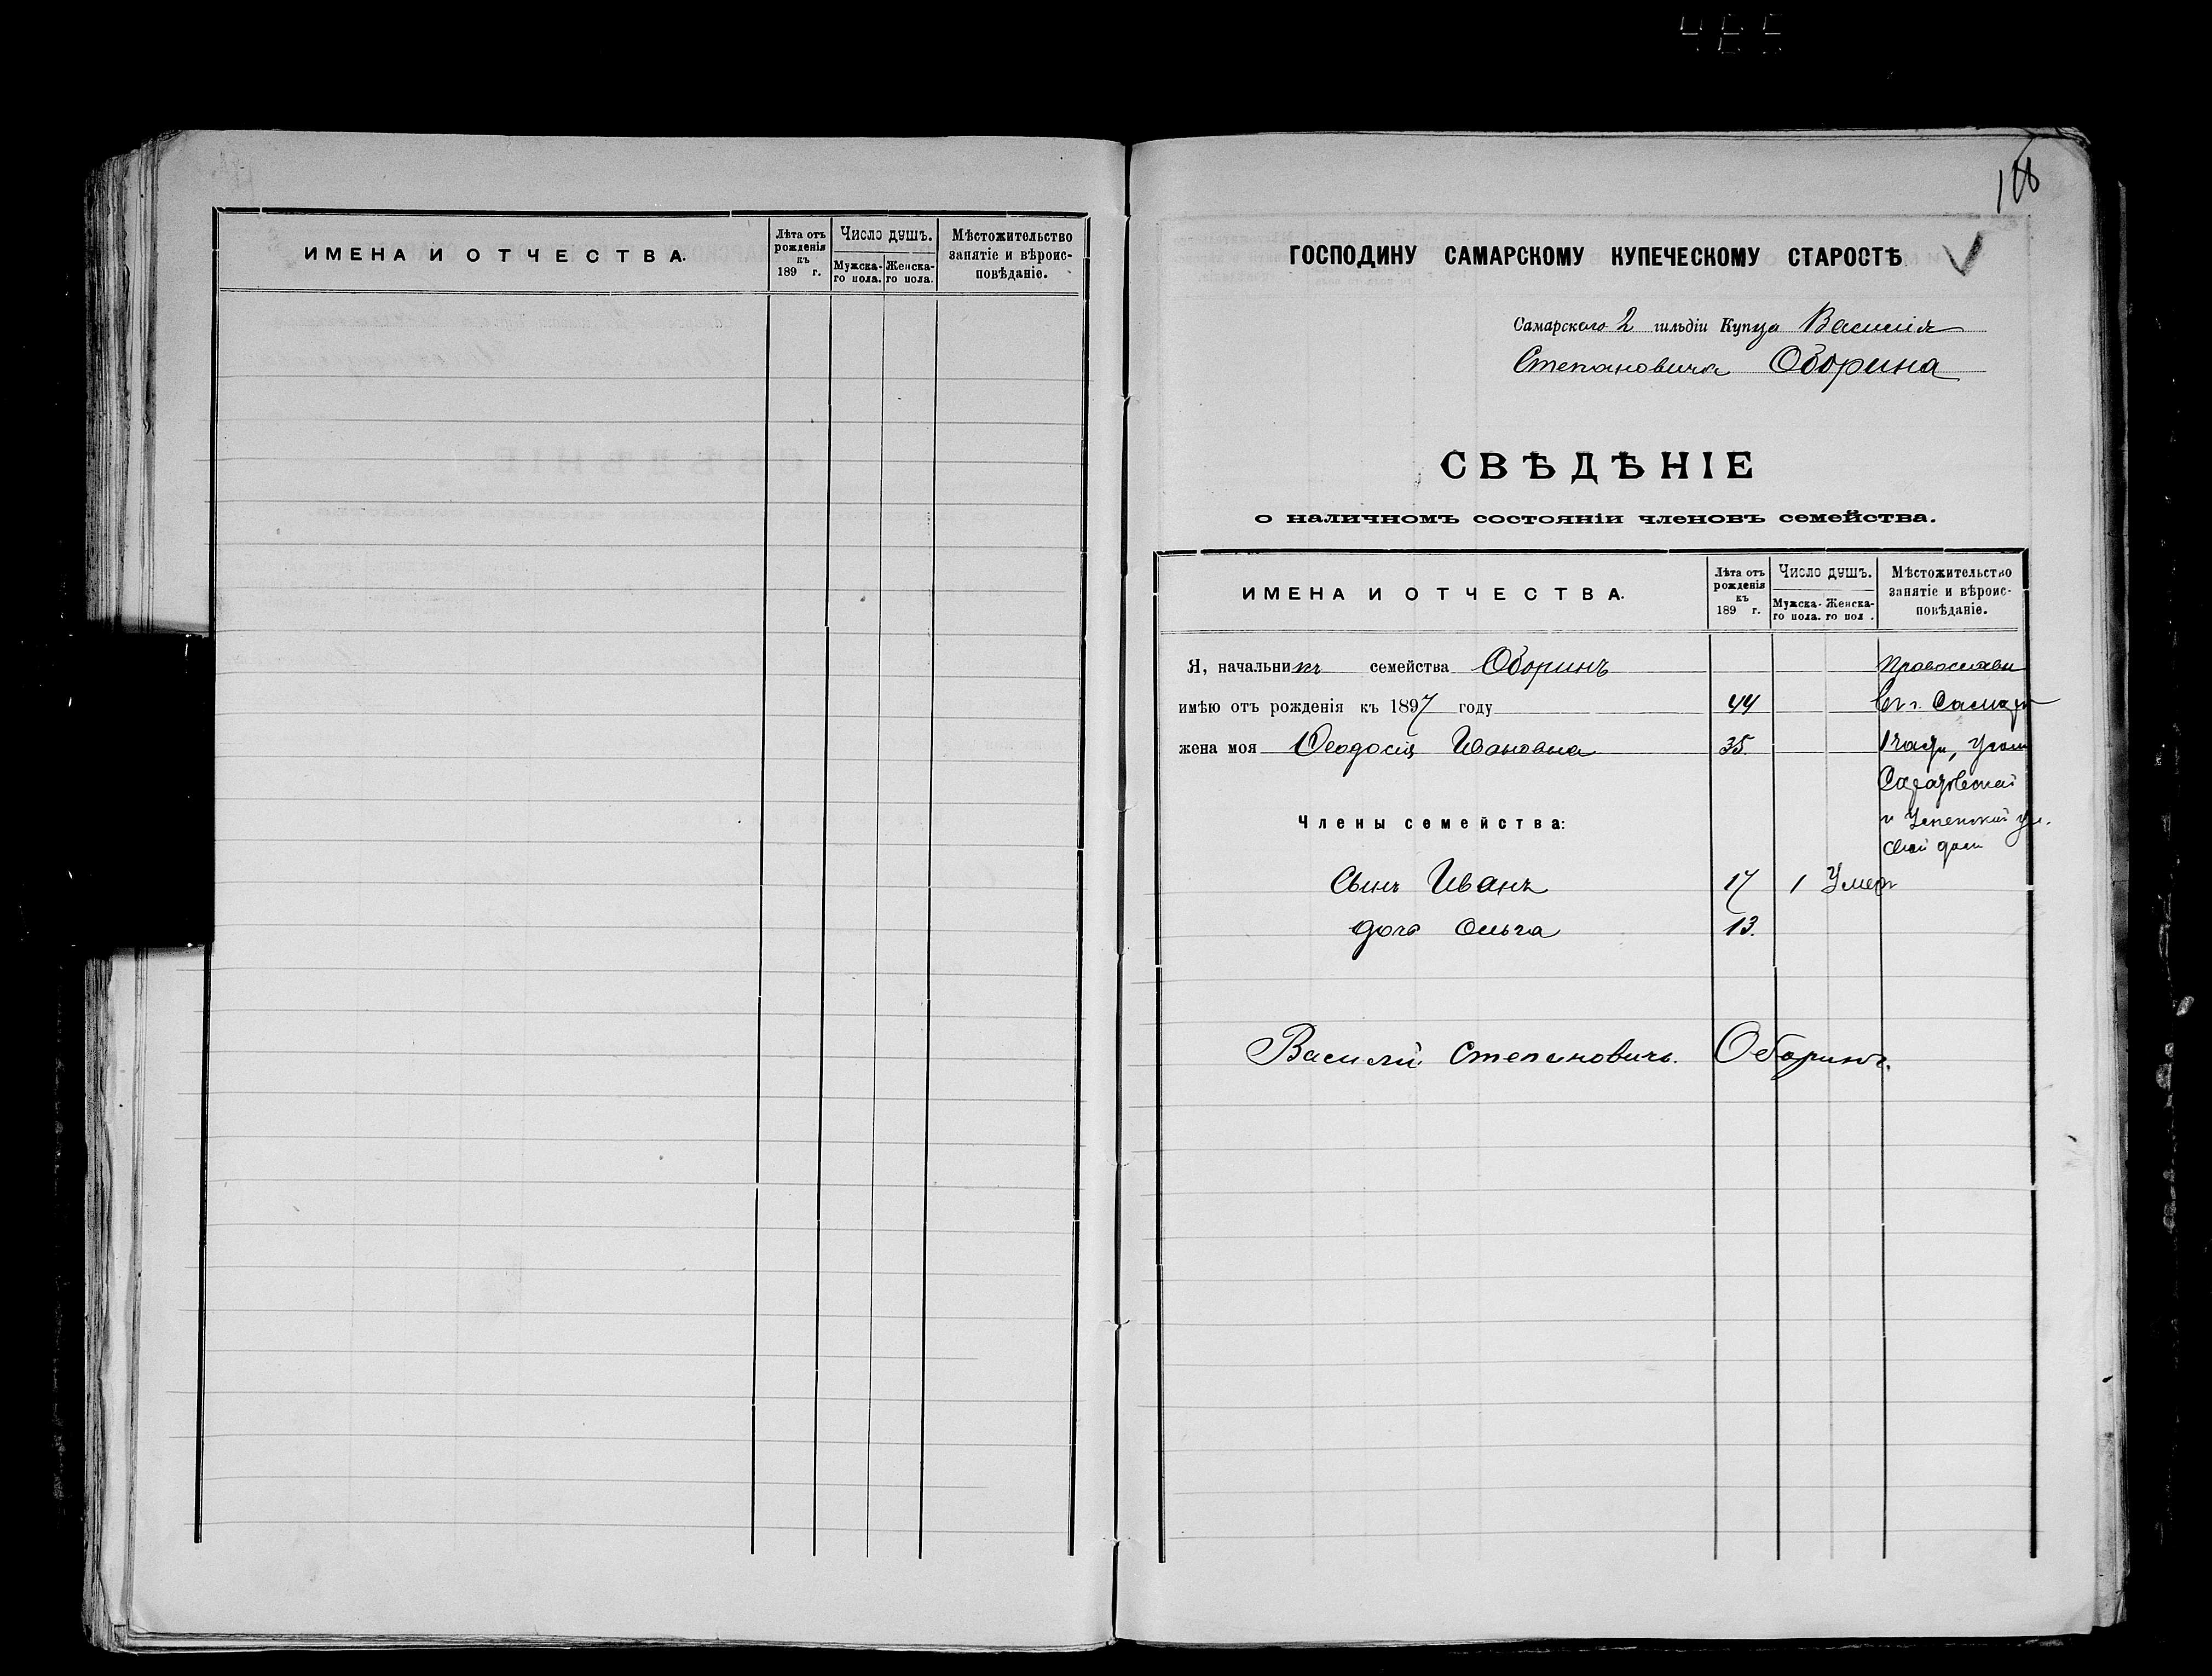 ИМЕНА И ОТЧЕСТВА.
Лѣта отъ рожденія къ 189 г.
Число душъ.
Мужска-го пола.
Женска-го пола.
Мѣстожительство занятіе и вѣроис-повѣданіе.
ГОСПОДИНУ САМАРСКОМУ КУПЕЧЕСКОМУ СТАРОСТѢ
Самарского 2 гильдіи Купца Василія
Степановича Оборина
СВѢДѢНІЕ
о наличномъ состояніи членовъ семейства.
ИМЕНА И ОТЧЕСТВА.
Лѣта отъ рожденія къ 189 г.
Число душъ.
Мужска-го пола.
Женска-го пол .
Мѣстожительство занятіе и вѣроис-повѣданіе.
Я, начальникъ семейства Оборинъ Православн
имѣю отъ рожденія къ 1897 году 44 Въ г. Самарѣ
жена моя Ѳеодосія Ивановна 35. 1 части, уголъ
Саратовской
Члены семейства: и Успенской ул.
свой домъ
Сынъ Иванъ 17 1 Умеръ
дочь Ольга 13.
Василій Степановичъ. Оборинъ.